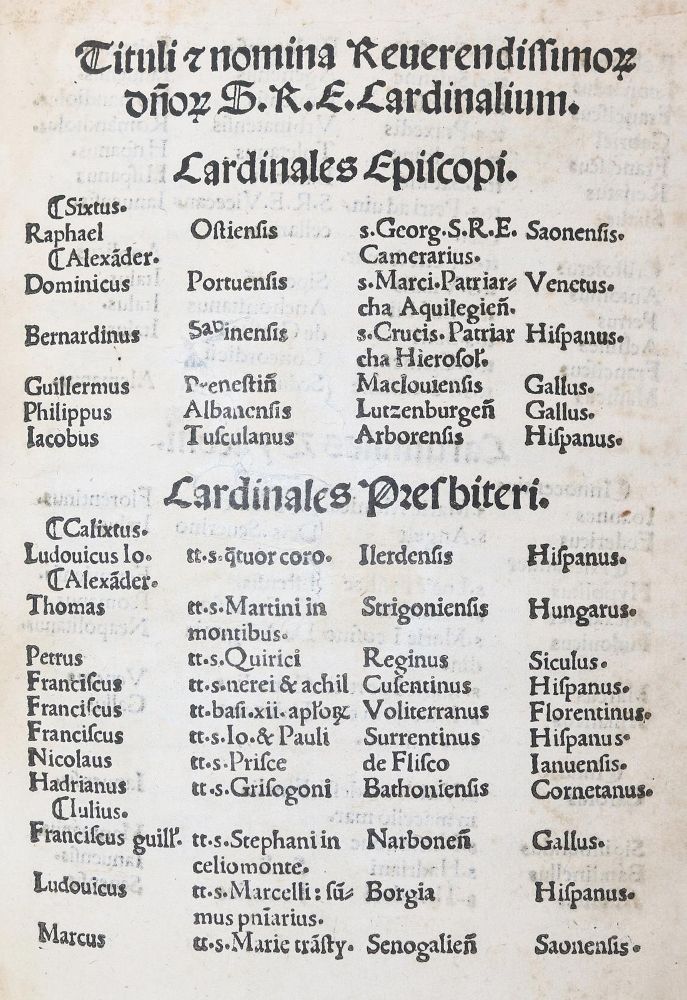 Tituli ⁊ nomina Reuerendiſſimoꝝ
dn̄oꝝ S. R. E. Cardinalium.
Cardinales Epiſcopi.
⸿ Sixtus.
Raphael Oſtienſis s. Georg. S. R. E. Saonenſis.
⸿ Alexãder. Camerarius.
Dominicus Portuenſis s. Marci. Patriar⸗ Venetus.
cha Aquilegieñ.
Bernardinus Sabinenſis s. Crucis. Patriar Hiſpanus.
cha Hieroſoł.
Guillermus Preneſtiñ Maclouienſis Gallus.
Philippus Albanenſis Lutzenburgeñ Gallus.
Iacobus Tuſculanus Arborenſis Hiſpanus.
Cardinales Preſbiteri.
⸿ Calixtus.
Ludouicus Io. tt. s. q̃tuor coro. Ilerdenſis Hiſpanus.
⸿ Alexãder.
Thomas tt. s. Martini in Strigonienſis Hungarus.
montibus.
Petrus tt. s. Quirici Reginus Siculus.
Franciſcus tt. s. nerei & achil Cuſentinus Hiſpanus.
Franciſcus tt. baſi. xii. apłoꝝ Voliterranus Florentinus.
Franciſcus tt. s. Io. & Pauli Surrentinus Hiſpanus.
Nicolaus tt. s. Priſce de Fliſco Ianuenſis.
Hadrianus tt. s. Griſogoni Bathonienſis Cornetanus.
⸿ Iulius.
Franciſcus guill'. tt. s. Stephani in Narboneñ Gallus.
celiomonte.
Ludouicus tt. s. Marcelli: sũ⸗ Borgia Hiſpanus.
mus pnĩarius.
Marcus tt. s. Marie trãſty. Senogalieñ Saonenſis.